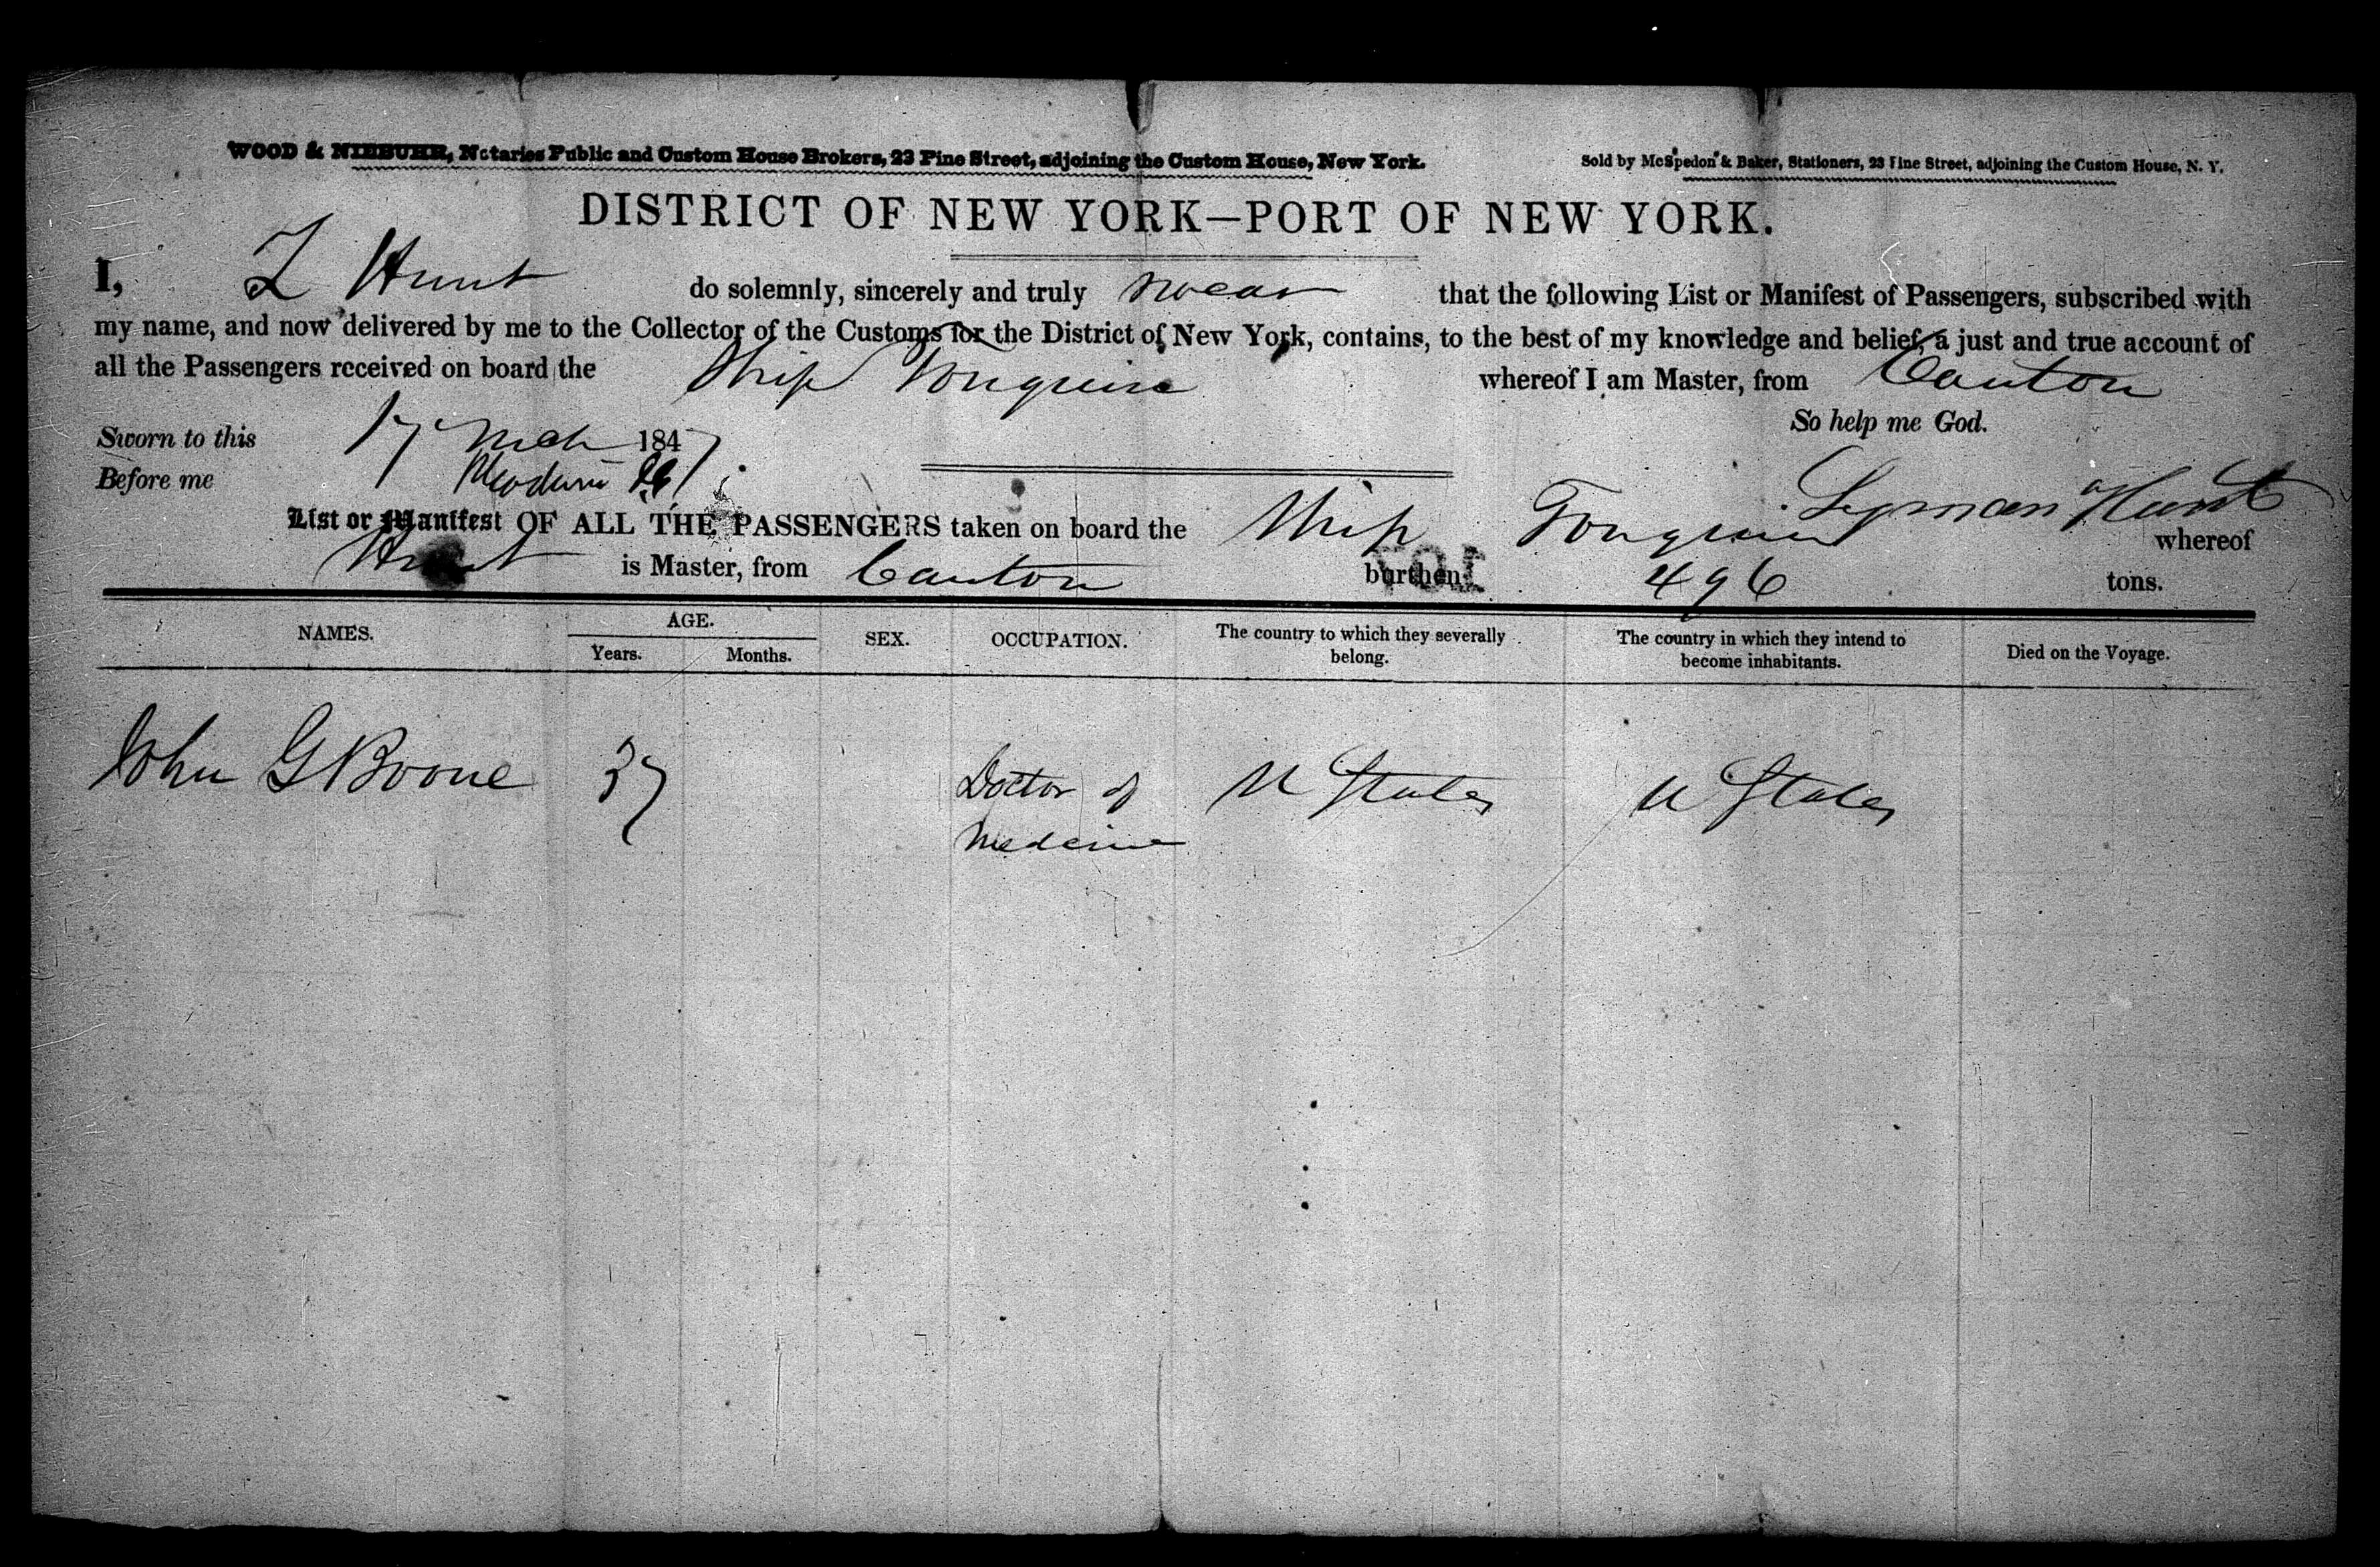 WOOD & NIEBUHR, Notaries Public and Custom House Brokers, 23 Pine Street, adjoining the Custom House, New York.
Sold by McSpedon & Baker, Stationers, 23 Pine Street, adjoining the Custom House, N. Y.
DISTRICT OF NEW YORK—PORT OF NEW YORK.
I, L Hunt do solemnly, sincerely and truly swear that the following List or Manifest of Passengers, subscribed with
my name, and now delivered by me to the Collector of the Customs for the District of New York, contains, to the best of my knowledge and belief, a just and true account of
all the Passengers received on board the Ship Tonquin whereof I am Master, from Canton
So help me God.
Sworn to this 17 Mch 1847
Before me
Lyman Hunt
List or Manifest OF ALL THE PASSENGERS taken on board the Ship Tonquin whereof
Hunt is Master, from Canton burthen 496 tons.
NAMES. AGE. SEX. OCCUPATION. The country to which they severally belong. The country in which they intend to become inhabitants. Died on the Voyage.
Years. Months.
John G Boone 37 Doctor of U States U States
Medecine